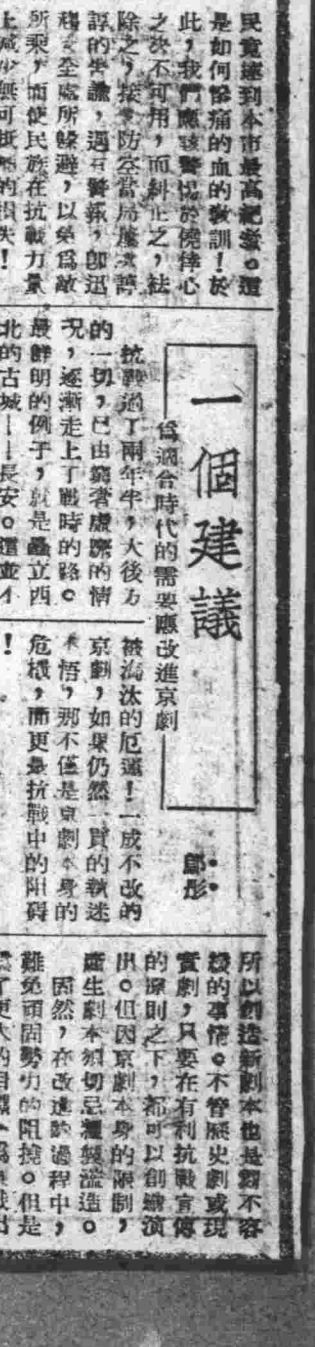 民竟達到本市最高紀錄。這
是如何慘痛的血的教訓！於
此，我們應該警惕於僥倖心
之決不可用，而糾正之，祛
除之，接受防空當局屢次諄
諄的告誡，遇有警報，即迅
移至全處所躲避，以免爲敵
所乘，而使民族在抗戰力量
上減少無可抵的損失！
一個建議
爲適合時代的需要應改進京劇
彤
抗戰過了兩年半，大後方
的一切，已由窮奢糜的情
况，逐漸走上了戰時的路。
最鮮明的例子，就是矗立西
北的古城——長安。這並不
被淘汰的厄運！一成不改的
京劇，如果仍然一貫的執迷
不悟，那不僅是京劇本身的
危機，而更是抗戰中的阻碍
！
所以創造新劇本也是刻不容
緩的事情。不管歷史劇或現
實劇，只要在有利抗戰宣傳
的原則之下，都可以創演
出。但因京劇本身的限制，
產生劇本須切忌粗製濫造。
固然，在改進的過程中，
難免頑固勢力的阻撓。但是
爲了更大的